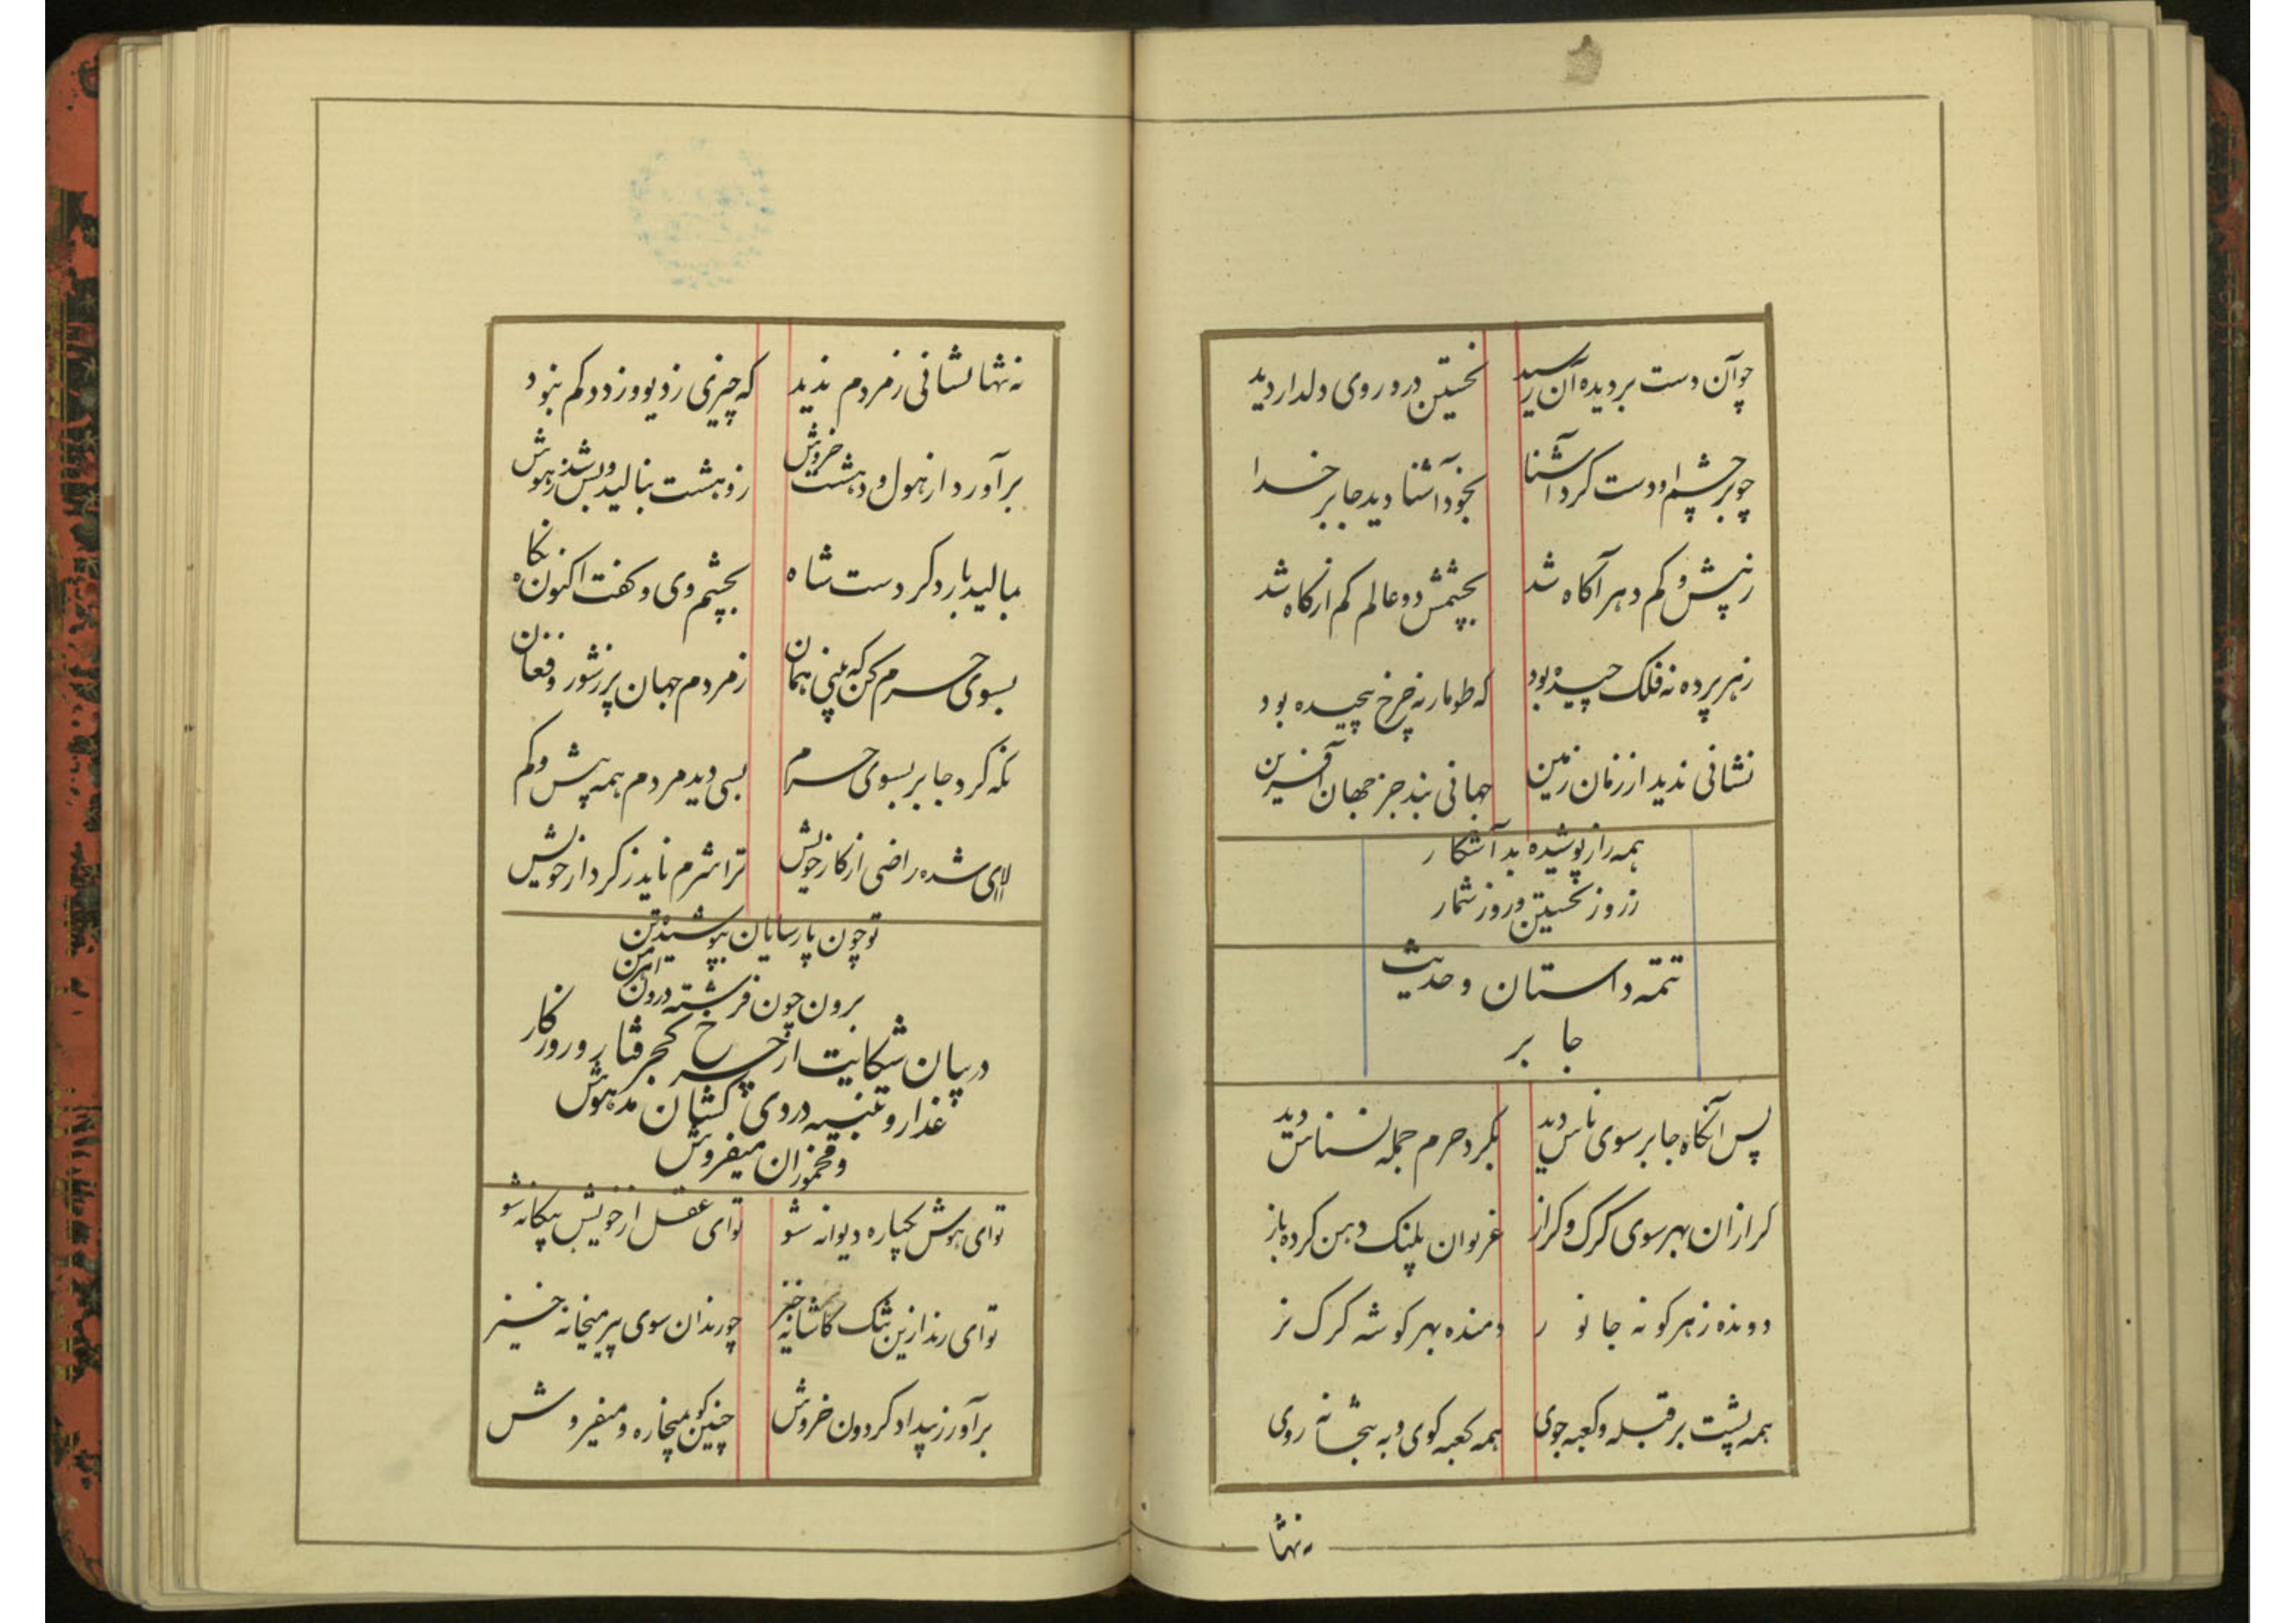 چو آن دست بر دیده آن رسید نخستین درو روی دلدار دید
چو بر چشم او دست کرد آشنا بخود آشنا دید جابر خدا
ز بیش و کم دهر آکاه شد بچشمش دو عالم کم از کاه شد
ز هر پرده نه فلک چیده بود که طومار نه چرخ پیچیده بود
نشانی ندید از زمان زمین جهانی بند جز جهان آفرین
همه راز پوشیده بد آشکار
ز روز نخستین و روز شمار
تتمه داستان و حدیث
جابر
پس آنکاه جابر سوی ناس دید بکرد حرم جمله نسناس دید
کرازان بهر سوی کرک و کراز غریوان پلنک دهن کرده باز
دونده ز هر کونه جانور دمنده بهر کوشه کرک نر
همه پشت بر قبله و کعبه جوی همه کعبه کوی و به بتخانه روی
نه تنها
نه تنها نشانی ز مردم ندید که چیزی ز دیو و ز دد کم نبود
برآورد از هول و دهشت خروش ز وهشت بنالید و بس شد ز هوش
بمالید بار دکر دست شاه بچشم وی و کفت اکنون نکاه
بسوی حرم کن که بینی همان ز مردم جهان پر ز شور و فغان
نکه کرد جابر بسوی حرم بسی دید مردم همه بیش و کم
الا ای شده راضی از کار خویش ترا شرم ناید ز کردار خویش
تو چون پارسایان بپوشیده تن
برون چون فرشته درون اهرمن
در بیان شکایت از چرخ کجرفتار و روزکار
غدار و تنبیه دردی کشان مدهوش
و مخموران میفروش
تو ای هوش یکباره دیوانه شو تو ای عقل از خویش بیکانه شو
تو ای رند ازین تنک کاشانه خیز چو رندان سوی پیر میخانه خیز
برآور ز بیداد کردون خروش چنین کو بمیخاره و میفروش